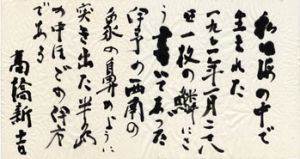 私は海の中で
生まれた
一九〇一年一月二八
日一枚の鱗にさ
う書いてあった
伊予の西南の
象の鼻のように
突き出た半島
の中ほどの伊方
である
高橋新吉